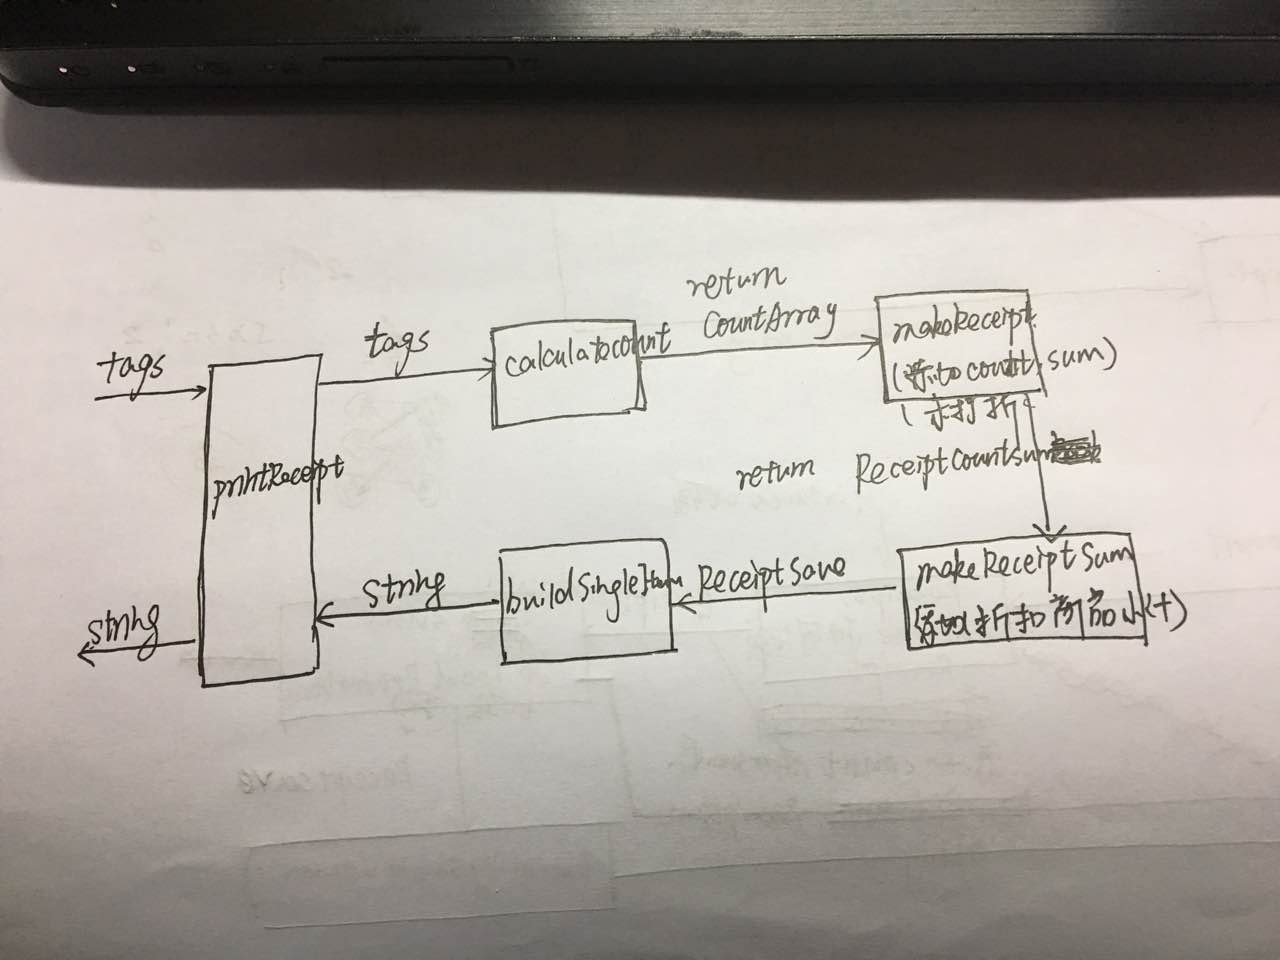 tags
printReceipt
tags
calculatecount
return
CountArray
makeReceipt
(添加count,sum)
(未打折
return ReceiptCountsum
makeReceiptSum
(添加折扣商品小计)
ReceiptSave
buildSingleItem
String
string